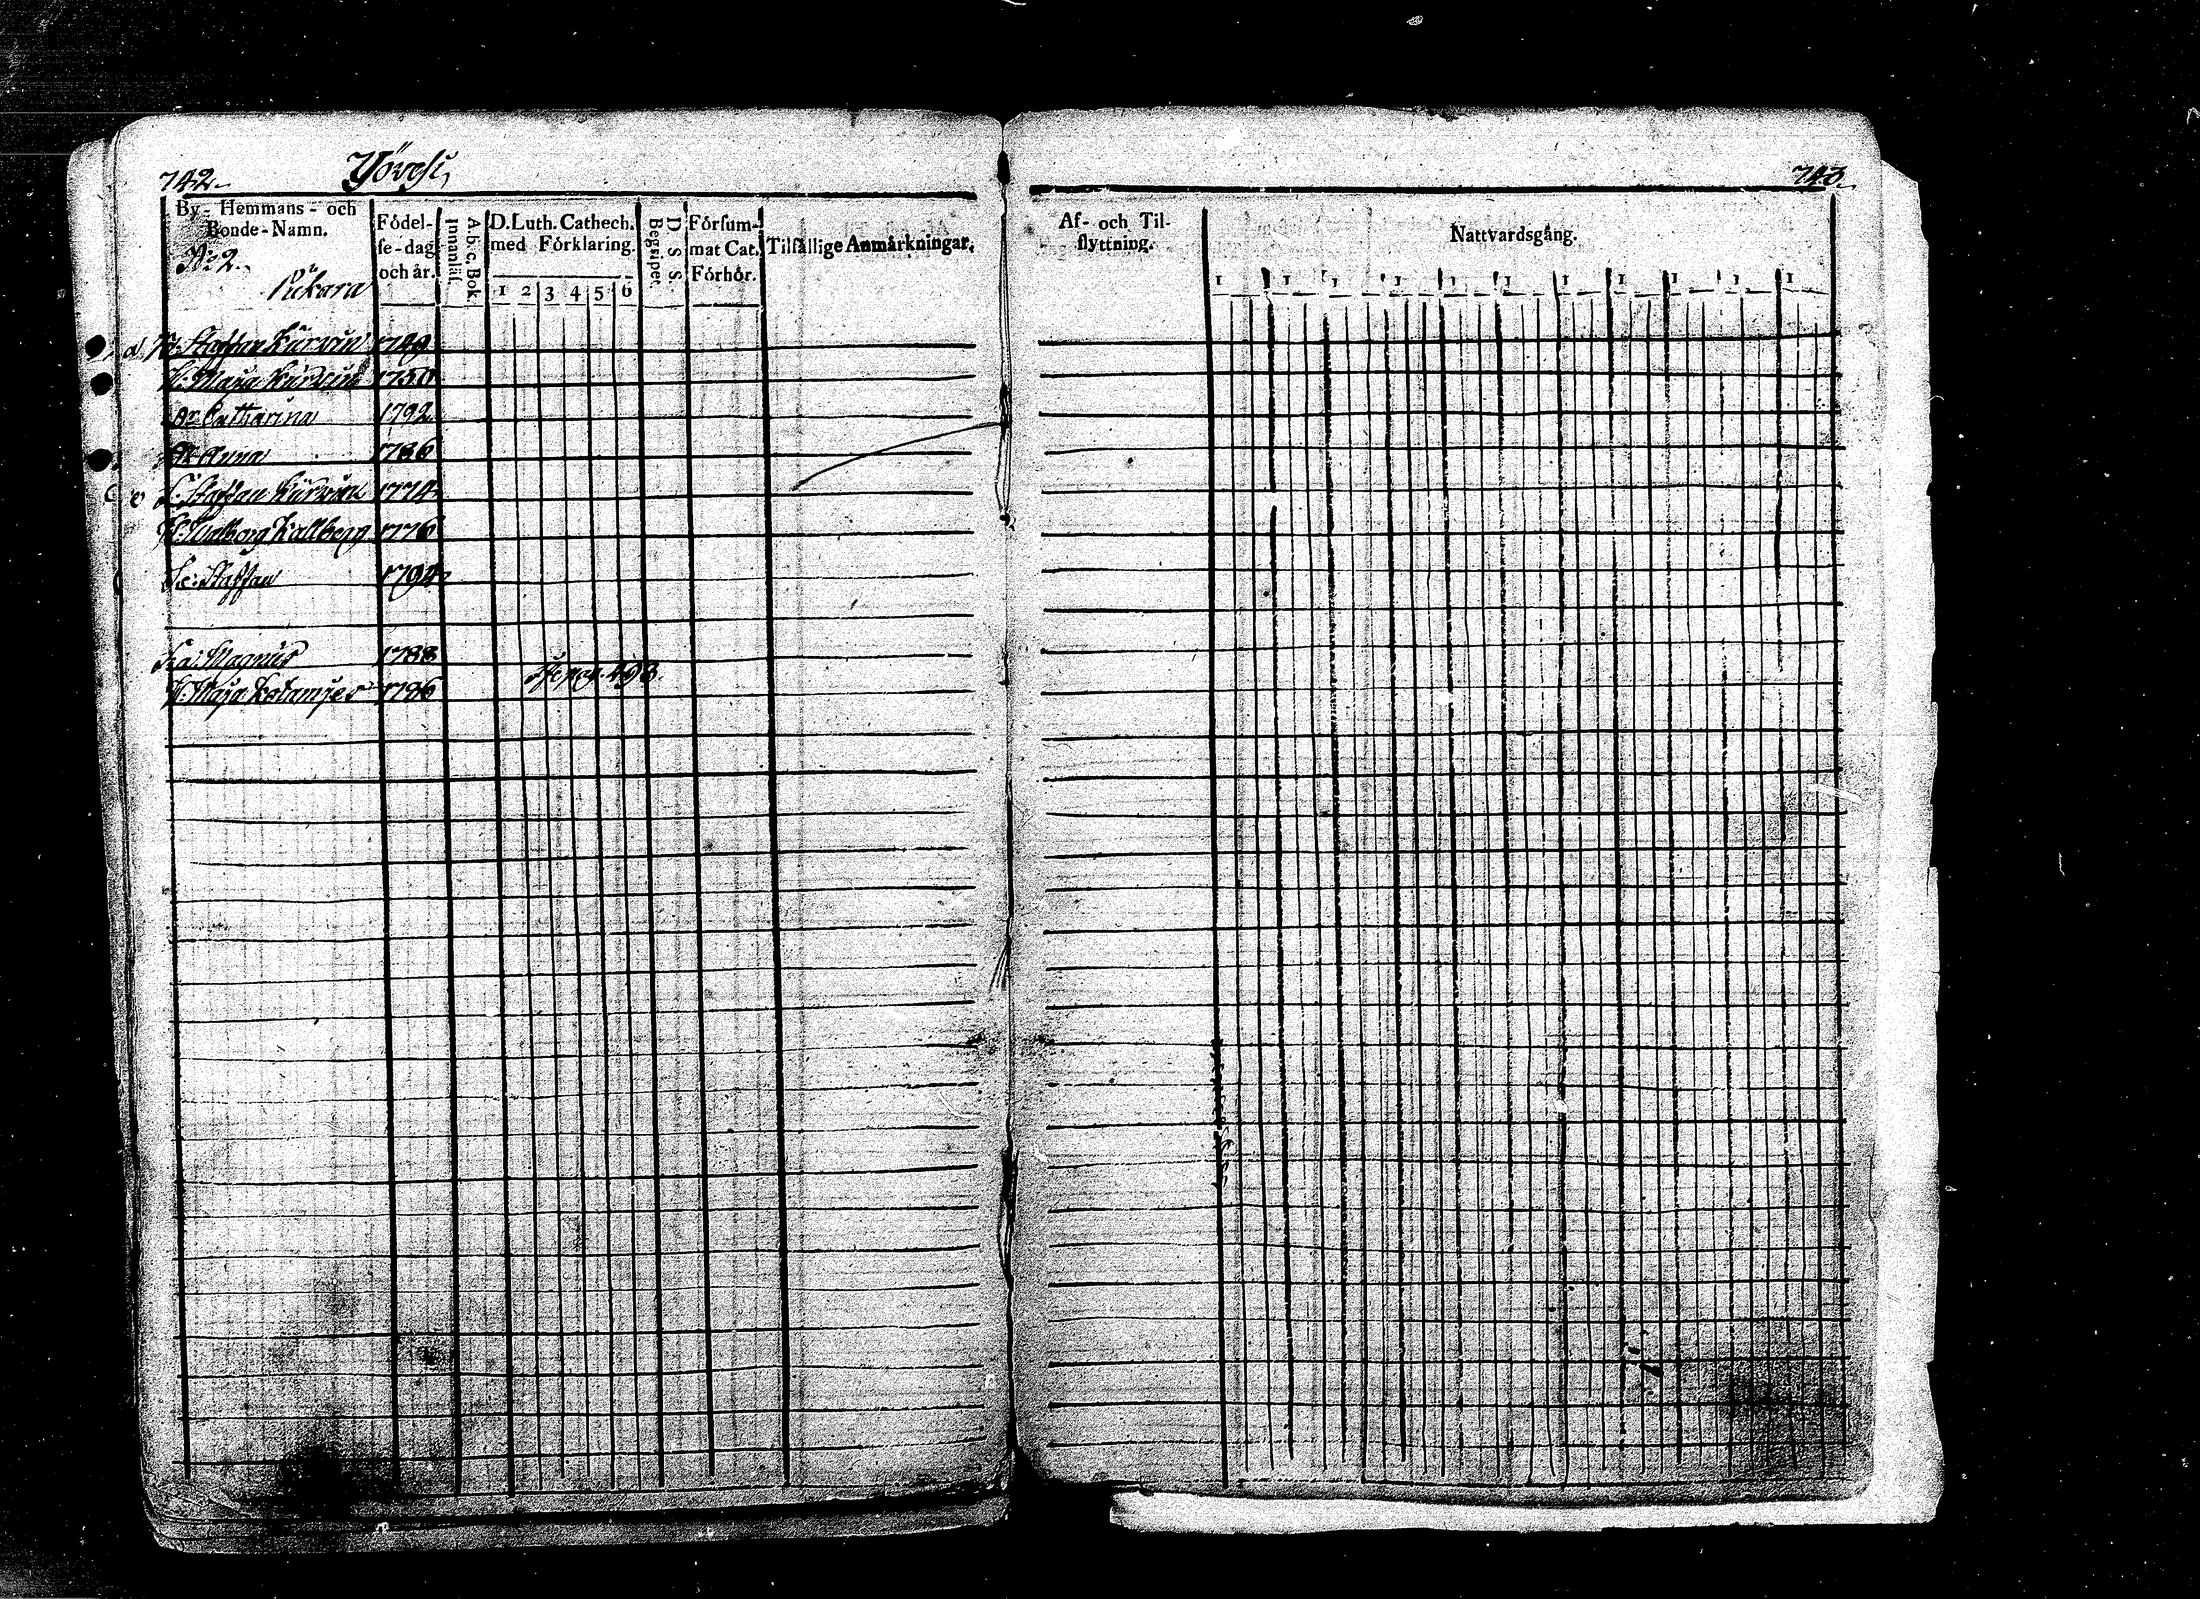 742.
Yövesi,
By- Hemmans- och
Bonde-Namn.
Födel-
se-dag
och år.
A.b.c. Bok.
innanläst.
D. Luth. Cathech.
med Förklaring.
1 2 3 4 5 6
D. S. S.
Begripet.
Försum-
mat Cat.
Förhör.
Tilfällige Anmärkningar.
No 2.
Pukara
Staffan 1749
H: Maja 1750
Dr Catharina 1792
Anna 1786
Staffan 1774
H: Walborg Kallberg 1776
Staffan 1794
Magnus 1788
H: Maja 1786
pag. 493.
743.
Af- och Til-
flyttning.
Nattvardsgång.
1 1 1 1 1 1 1 1 1 1 1